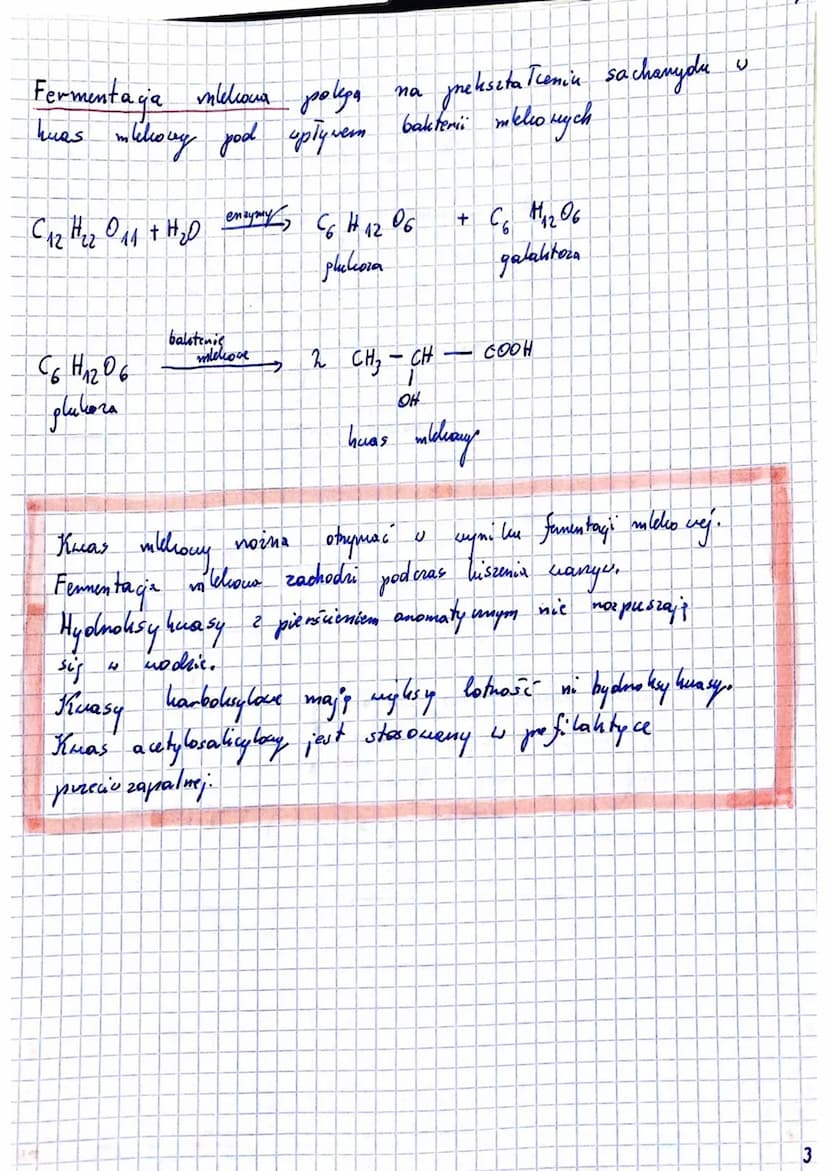 Fermentacja mlekowa polega na przekształceniu sacharydu w
kwas mlekowy pod wpływem bakterii mlekowych
C12 H22 O11 + H2O enzymy → C6 H12 O6 + C6 H12 O6
glukoza galaktoza
C6 H12 O6 bakterie mlekowe → 2 CH3 – CH — COOH
glukoza OH
kwas mlekowy
Kwas mlekowy można otrzymać w wyniku fermentacji mlekowej.
Fermentacja mlekowa zachodzi podczas kiszenia warzyw.
Hydroksykwasy z pierścieniem aromatycznym nie rozpuszają
się w wodzie.
Kwasy karboksylowe mają wyksy lotność ni hydroksykwasy.
Kwas acetylosalicylowy jest stosowany w profilaktyce
przeciwzapalnej.
3